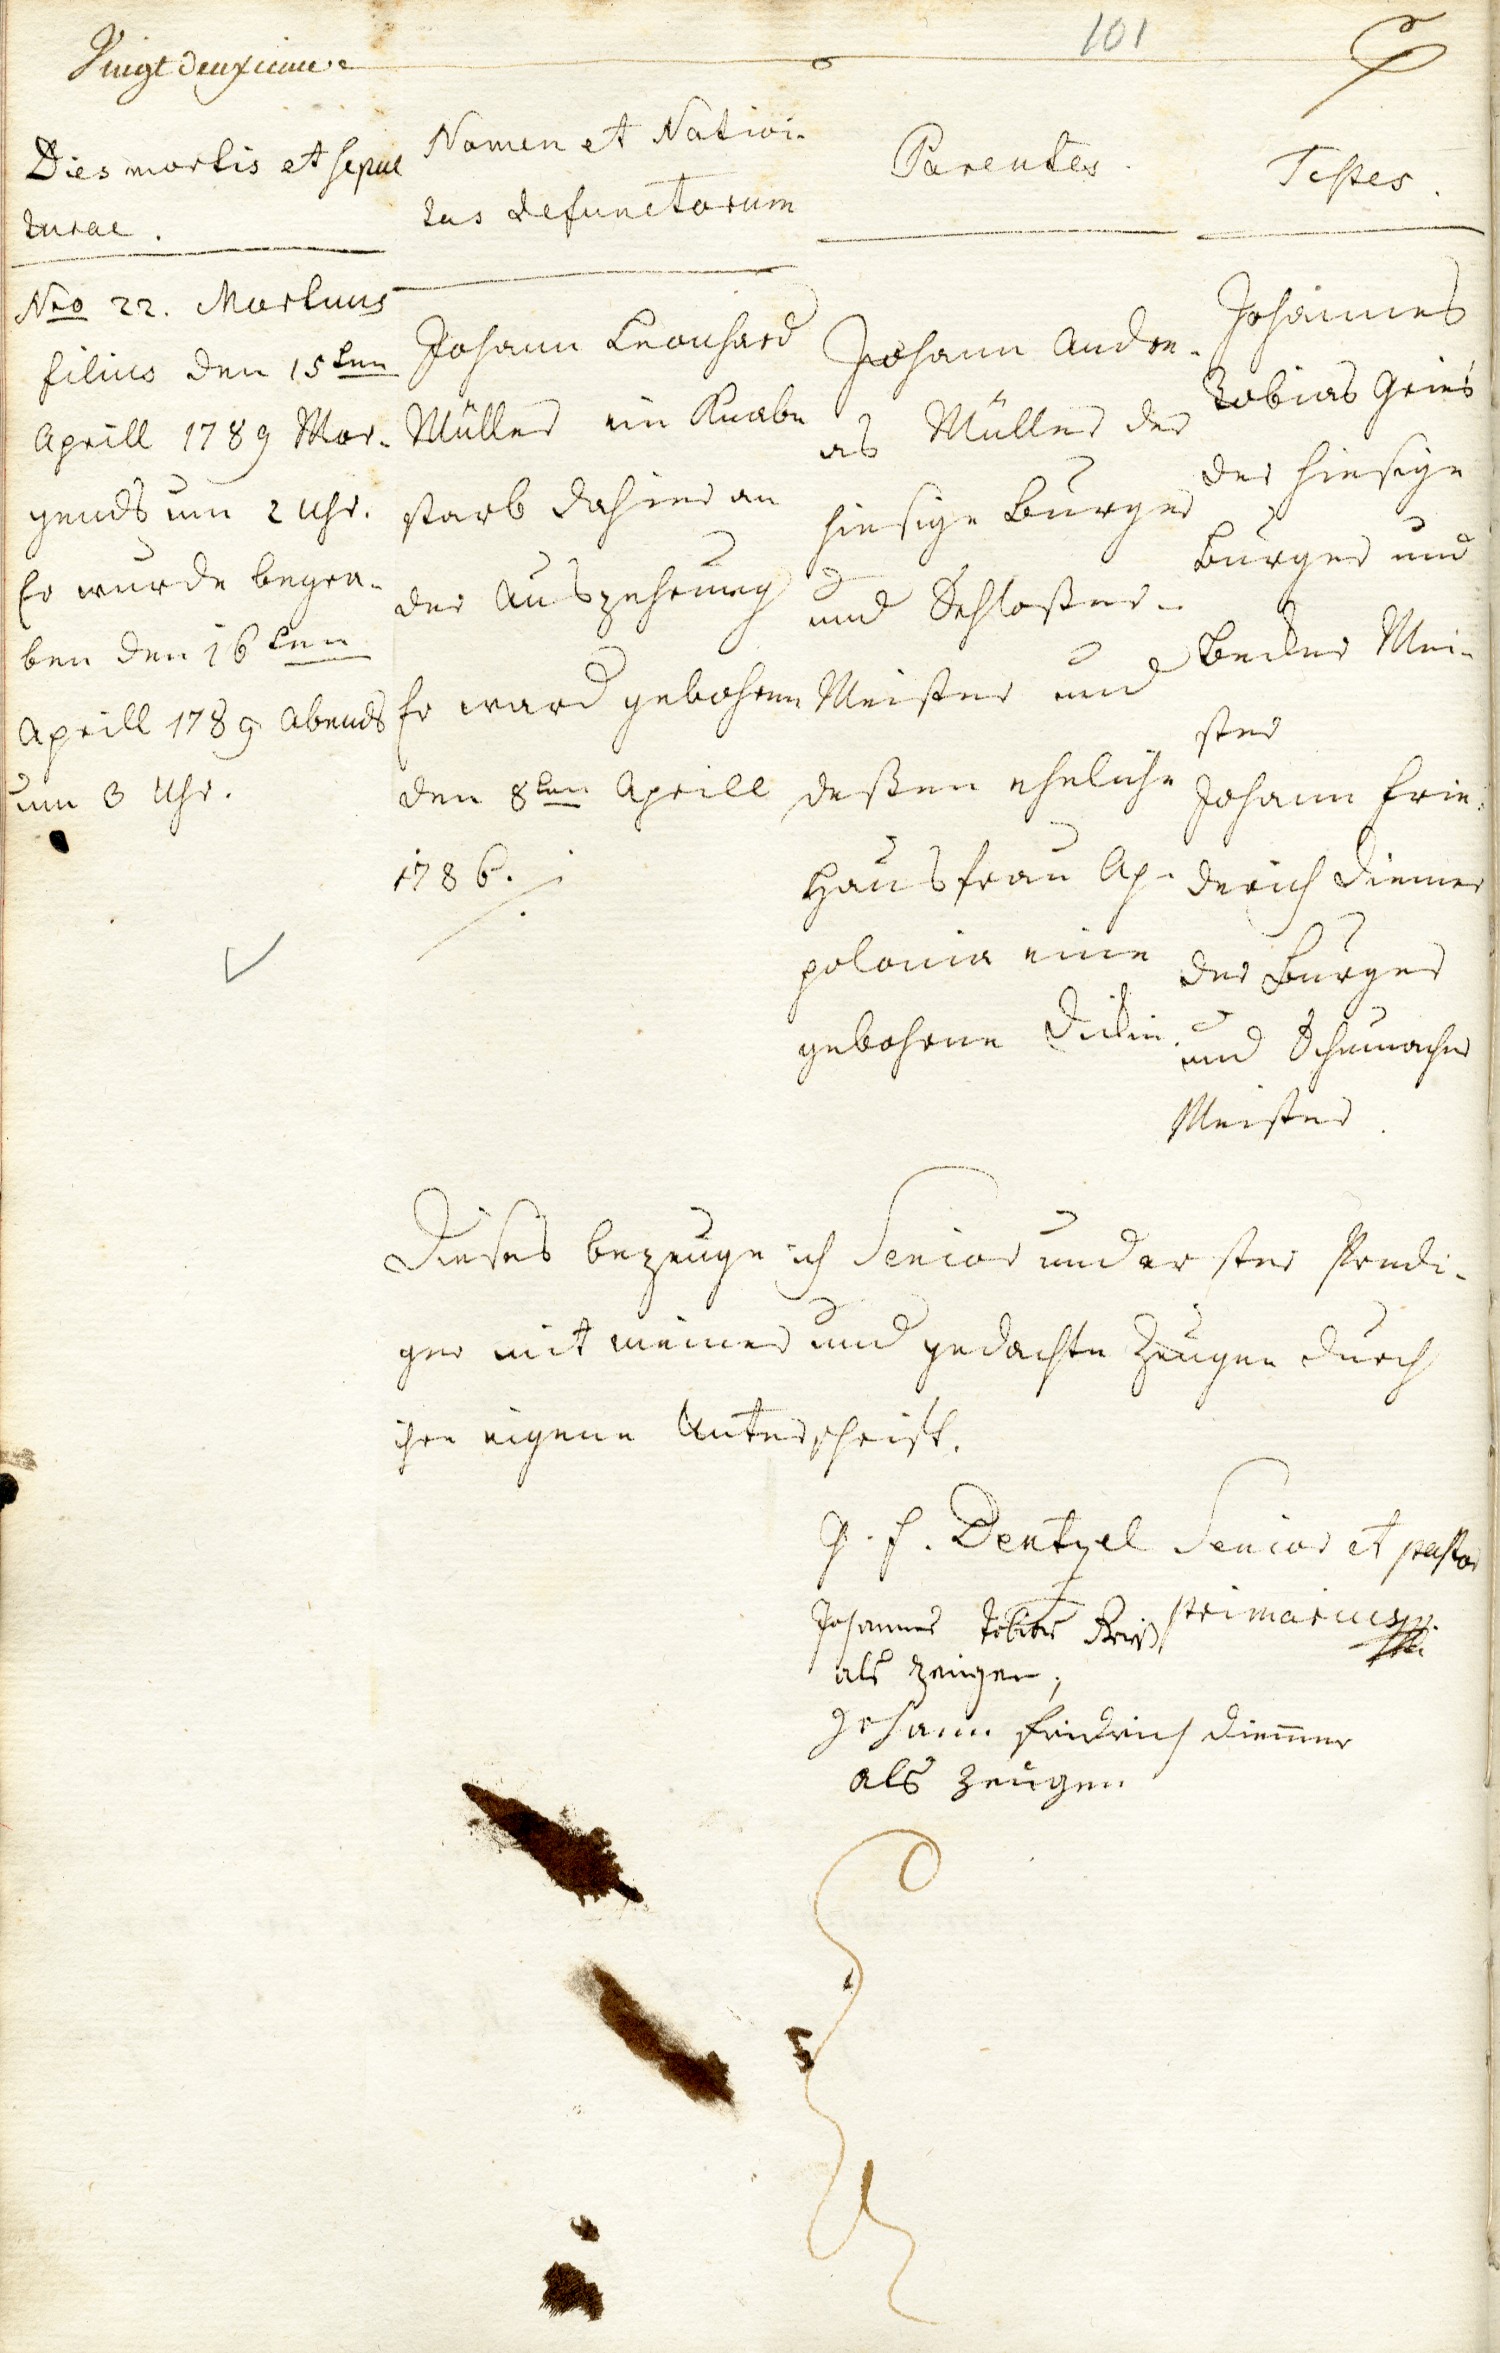 Vingt deuxieme
101
Dies mortis et sepul
turae.
Nro 22. Mortuus
filius den 15ten
Aprill 1789 Mor-
gends um 2 Uhr.
Er wurde begra-
ben den 16ten
Aprill 1789 Abends
um 3 Uhr.
Nomen et Nativi-
tas defunctorum
Johann Leonhard
Müller ein Knabe
starb dahier an
der Auszehrung
Er ward gebohren
den 8ten Aprill
1786.
Parentes.
Johann Andre-
as Müller der
hiesige Burger
und Schloßer-
Meister und
deßen eheliche
Hausfrau Ap-
polonia eine
gebohrne
Testes.
Johannes
Tobias Gries
der hiesige
Burger und
Becker Mei-
ster
Johann Frie-
derich Diemer
der Burger
und Schumacher
Meister.
Dieses bezeuge ich Senior und erster Predi-
ger mit meiner und gedachte Zeugen durch
ihre eigene Unterschrift.
G. F. Dentzel Senior et pastor
primarius
Johannes Tobias
als Zeugen,
Johann Fridrich Diemer
als Zeugen